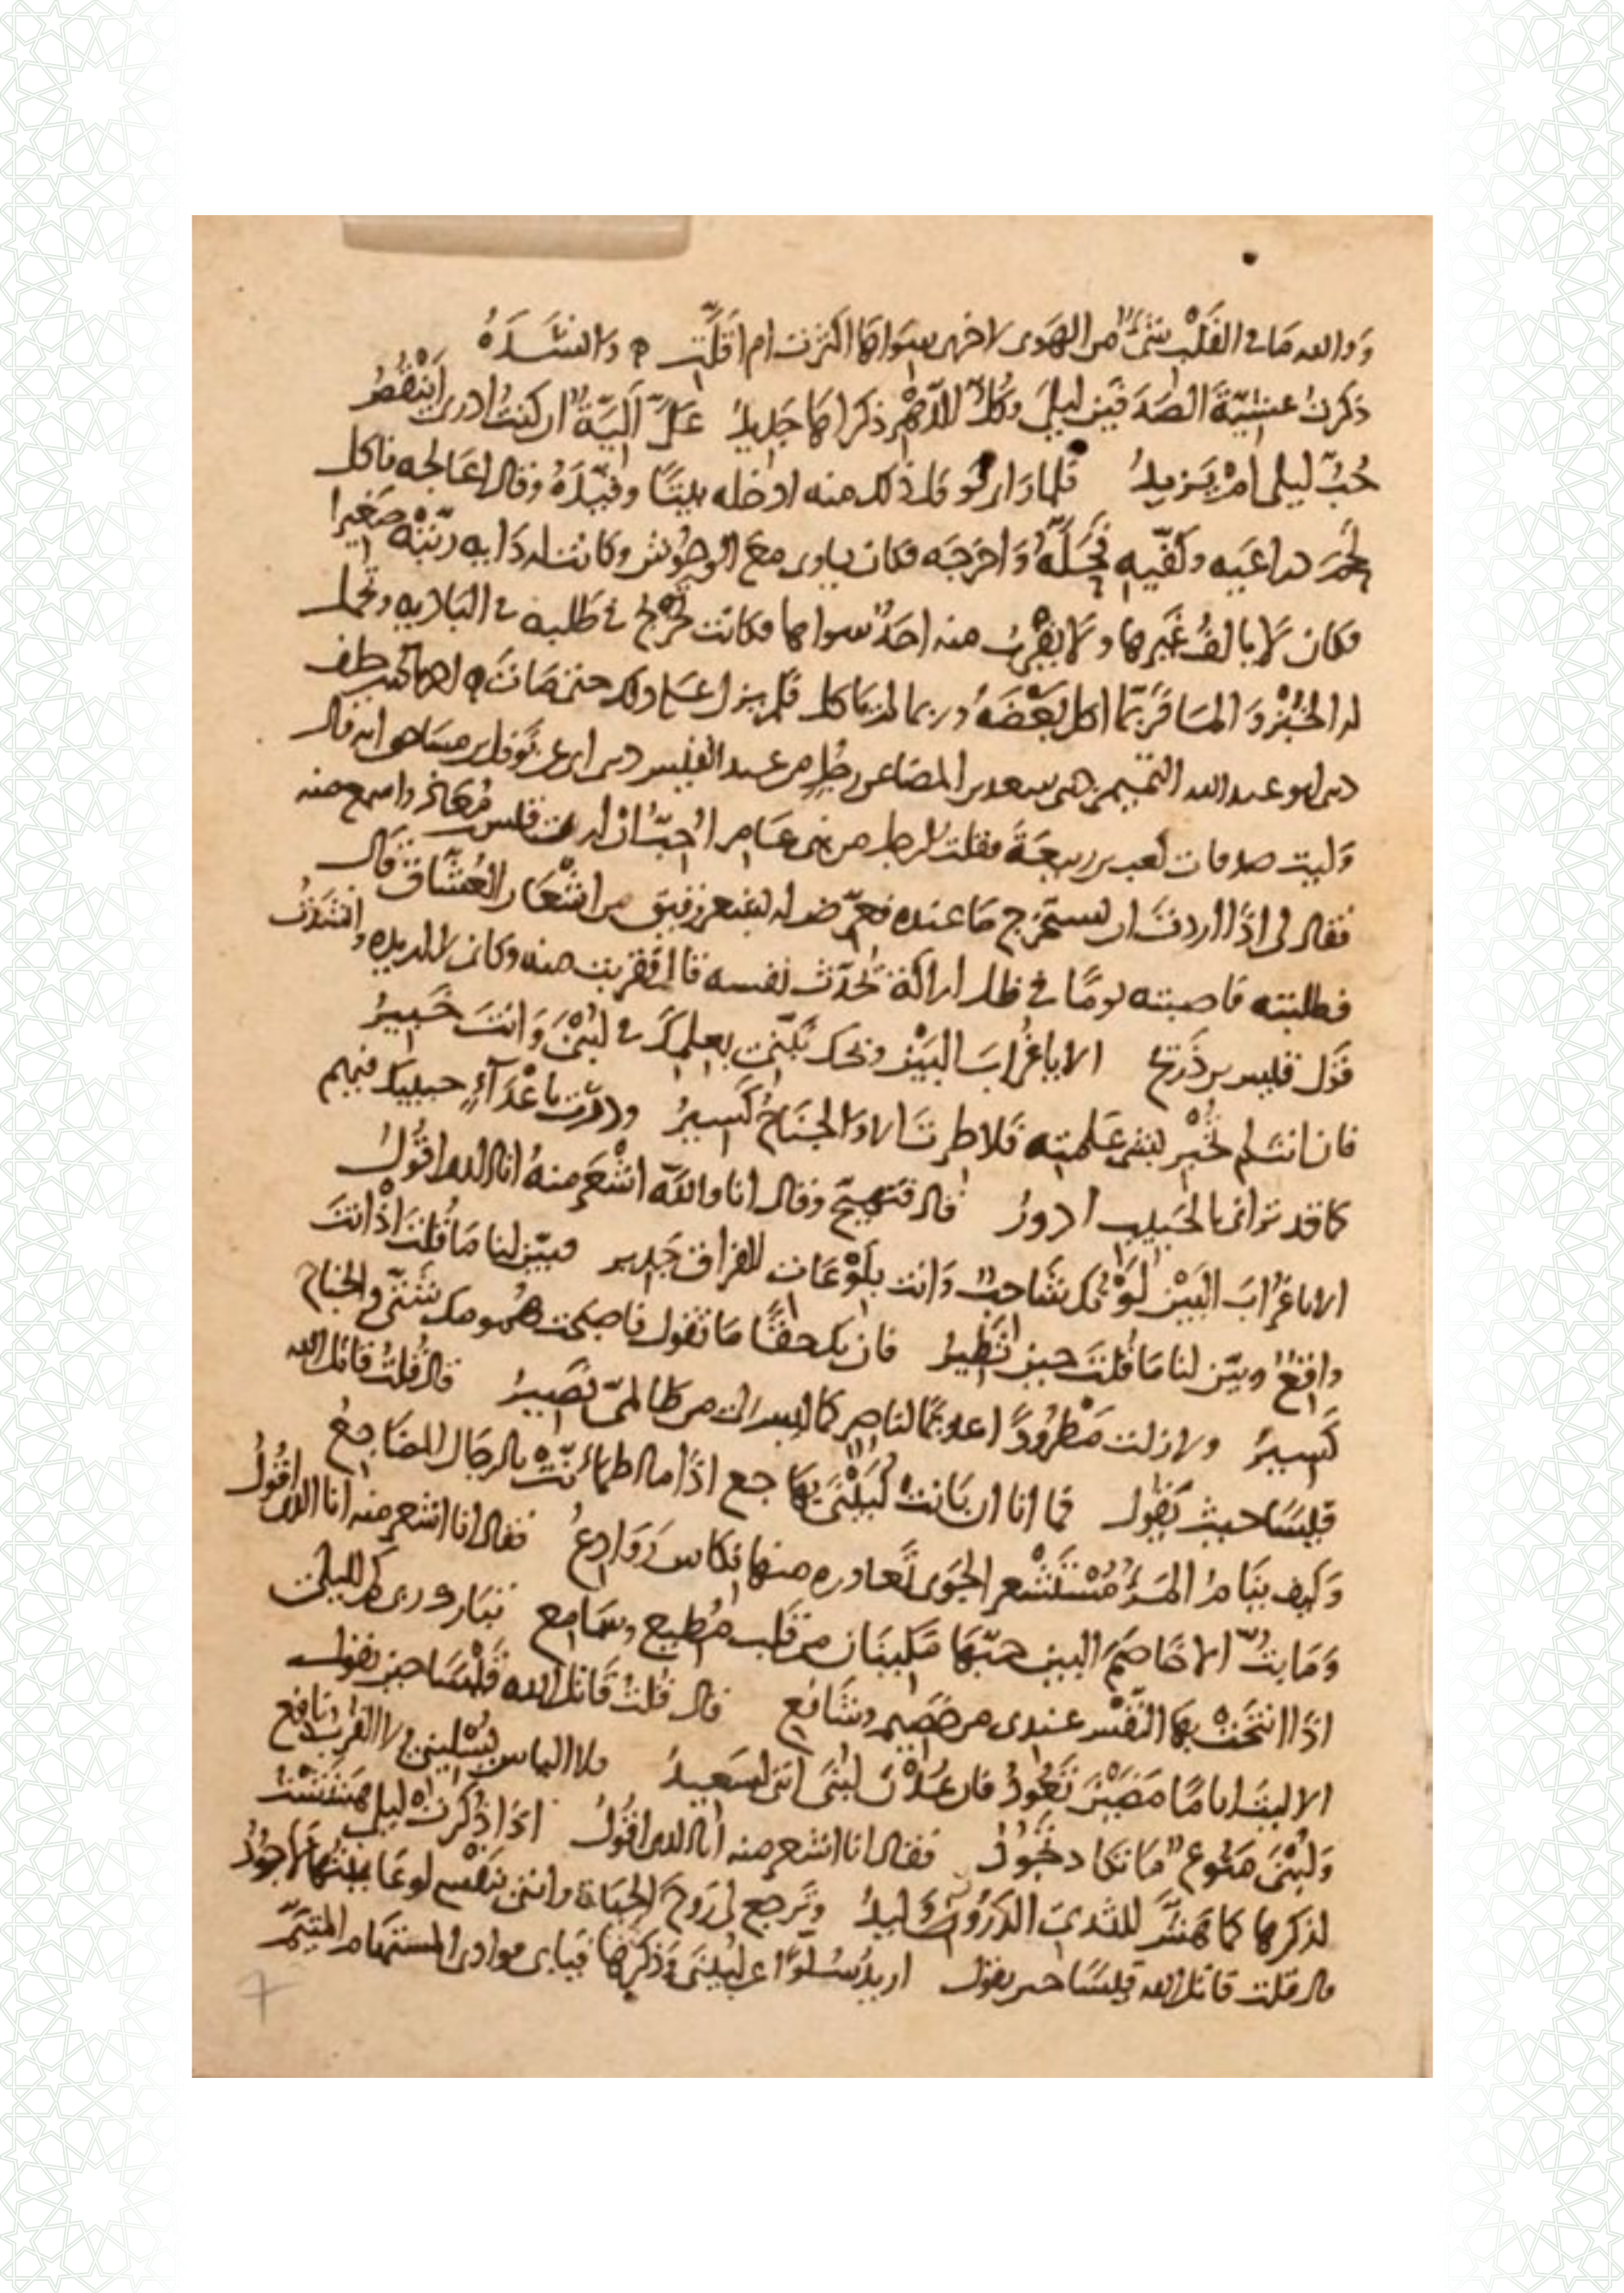 وَوالله مَا في القَلْبِ شَىْءٌ من الهَوى لاخرى سِوَاهَا اكْثَرَت ام اقَلَّتِ ه وانشَدَهُ
ذكرتُ عشِيّةَ الصَدَفَين ليلَى وكُلُّ الدّهْرِ ذكراهَا جَدِيدُ عَلَىَّ اَليَّةٌ ان كنتُ ادرى اَيَنْقُصُ
حُبُّ ليلى امْ يَزيدُ فلما راى ابوه ذلك منه ادخله بيتًا وقيّدَهُ وقال اعَالجه فاكل
لحْمَ ذراعَيه وكفّيه فحَلَّهُ وَاخرَجَه فكان ياوى معَ الوحُوش وكانت له دَايه ربّتْه صَغيرا
فكان لَا يالفُ غَيرها ولَا يقرُبُ منه احَدٌ سواها فكانت تخرُج في طَلبه في الباديه وتحمل
له الخُبْز وَالمَا فرُبّمَا اكل بَعْضَهُ وربما لم يَاكل فلم يزل على ذلك حتى مَاتَ ه
ابو عبد الله التميمى سعد بن رجُل من عبد القيس نوفل بن مساحق انه قال
وَليت صدقات كعب بن ربيعَة فقلت لرجل من بنى عَامر اُحبّ انْ ارى قيس مُعَاذ واسمع منه
فقال لى اذَا اردتَ ان تستخرج مَا عنده فعرّض له بشعر رقيق من اشْعَار العُشَّاق قال
فطلبته فاصبته يومًا في ظل اراكة يُحَدّث نفسه قال فقربت منه وانشَدْتُ
قَول قيس بن ذَريح الا يا غُرابَ البَيْن ويحك نَبّنى بعلمكَ في لبْنَى وَانتَ خَبيرُ
فان انت لم تخْبِر بشىء عَلمته فلا طِرتَ الا وَالجنَاحُ كَسِيرُ ودُرْتَ باعْدَآءٍ حبيبك فيهم
كما قد ترانى بالحَبيب ادورُ قال فتهيّج وقال انا واللّه اشْعَر منهُ انا الذى اقُولُ
الا يا غُرَابَ البَيْن لَوْنُكَ شَاحبٌ وَانت بلَوْعَات الفراق جَدير فبيّن لنا مَا قُلتَ اذْ انتَ
واقعٌ وبيّن لنا مَا قُلتَ حين تَطيرُ فان يك حقًّا مَا تقول فاصبحت هُمومك شَتّى والجناح
كَسيرُ ولا زلت مَطْرُودًا كما ليس لى من ظالمىّ نصَيرُ قال قُلتُ قاتل الله
قيسَا حيث يَقول فما انا ان بَانت لُبَيْنَى بهَاجع اذَا ما اطمانّتْ بالرجَال المضَاجعُ
وَكيف ينَامُ المَرءُ مُسْتَشْعِر الجَوى نكاس رَوَادِعُ فقال انا اشعر منه انا الذى اقُولُ
وَمَا بتُّ الا خَاصَمَ البين حبّهَا مَليَّان من قلب مُطيع وسَامع
اذَا انتحَتْ بهَا النّفْس عندى من خَصِيم وشَافع قال قُلتُ قَاتل الله قَيْسَا حين يقول
الا ليت ايامًا مَضَيْنَ تَعُودُ فان عُدْن لبنَى اننى لسَعيدُ فلا الياس يُسْلينى ولا القرب نافع
وَلبْنَى مَنُوعٌ مَا تكَاد تجُودُ فقال انا اشعر منه انا الذى اقُولُ اذَا ذُكرتْ ليلى هَشَشْتُ
لذكرها كما هَشَّ للثدىّ الدَرُورِ وَليدُ وتَرجع لى رَوحَ الحيَاة وانّنى بنَفْسى لو عَاينتُهَا لاجُودُ
قال قلت قاتل الله قيسًا حين يقول اريدُ سُلوًا عن لُبَيْنَى وَذكرهَا فيَابى فوادى المستهَام المتيَّم
7